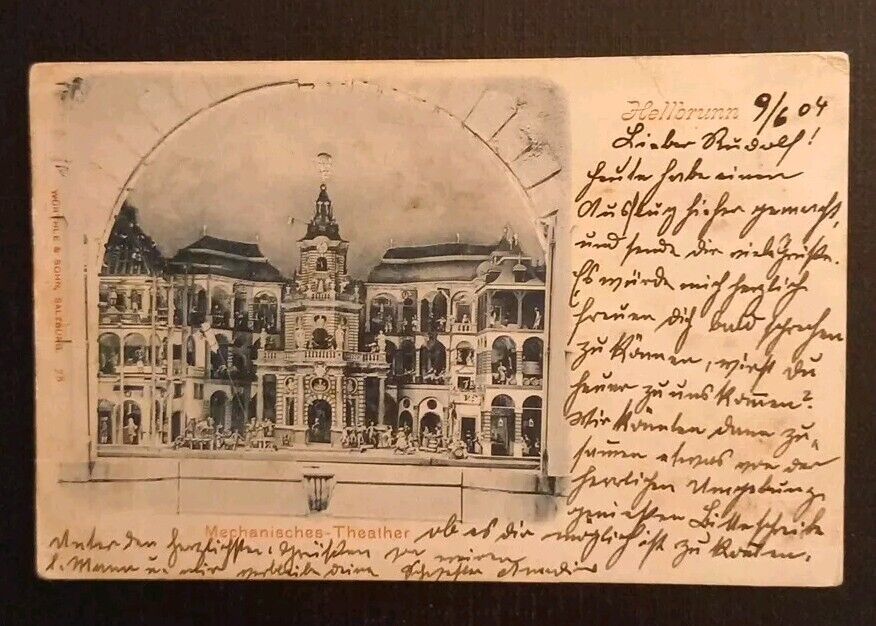 Hellbrunn 9/6 04
Lieber Rudolf!
Heute habe einen
Ausflug hieher gemacht,
und sende dir viele Grüße.
Es würde mich herzlich
freuen dich bald sprechen
zu können, wirst du
heuer zu uns kommen?
Wir könnten dann zu-
sammen etwas von der
herrlichen Umgebung
genießen. Bitte schreibe
ob es dir möglich ist zu kommen.
Unter den herzlichsten Grüßen von meinem
l. Mann u. mir verbleibe deine
WÜRTHLE & SOHN, SALZBURG. 78
Mechanisches-Theather